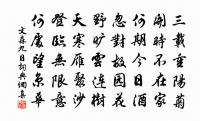 三載重陽菊
開時不在家
何期今日酒
忽對故园花
野曠雲連樹
天寒雁聚沙
登臨無限意
何處望京華
文森九日詞典網集